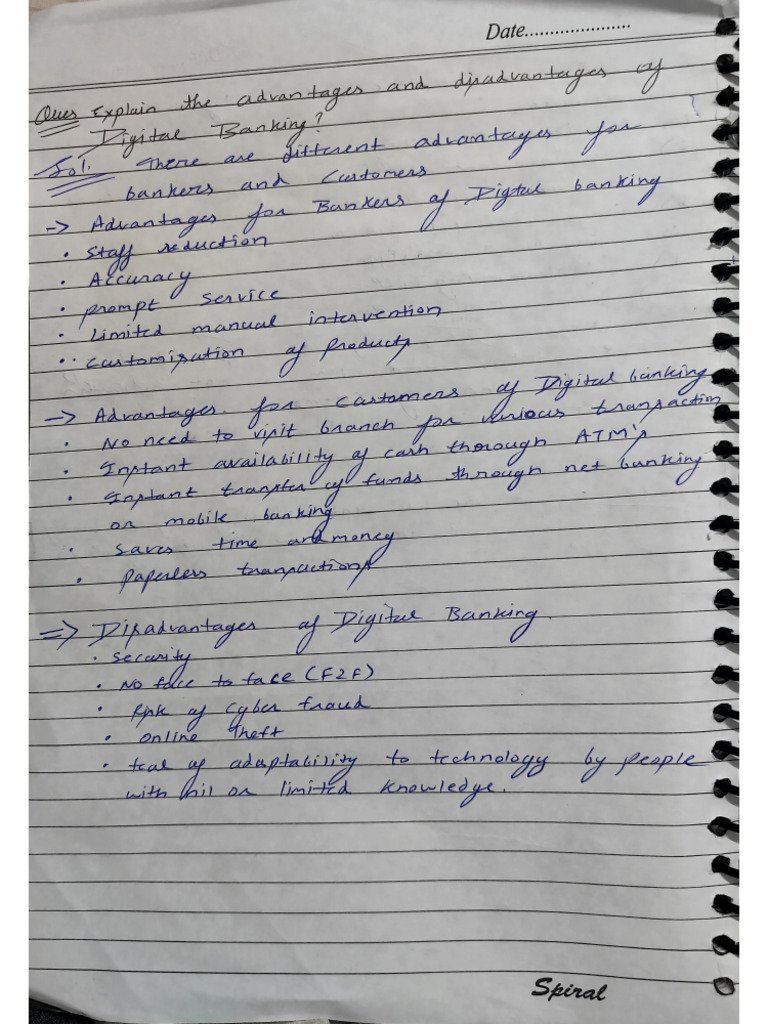 Date.....................
Ques Explain the advantages and disadvantages of
Digital Banking?
Sol. There are different advantages for
bankers and Customers
-> Advantages for Bankers of Digtal banking
• Staff reduction
• Accuracy
• prompt Service
• Limited manual intervention
•• Customisation of Products
-> Advantages for customers of Digital banking
• No need to visit branch for various transaction
• Instant availability of cash thorough ATM's
• Instant transfer of funds through net banking
or mobile banking
• Saves time and money
• Paperless transactions
=> Disadvantages of Digital Banking.
• Security
• No face to face (F2F)
• Risk of Cyber fraud
• Online Theft
• of adaptability to technology by people
with nil or limited knowledge.
Spiral